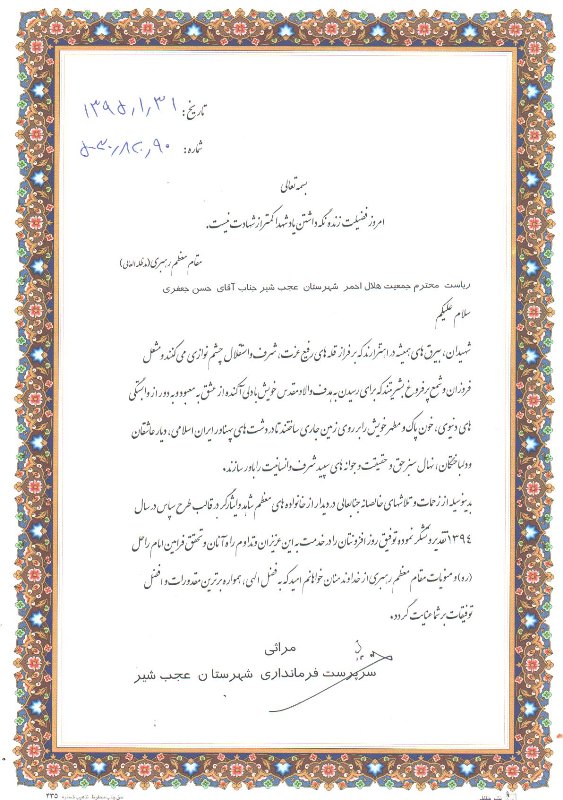 تاریخ: ۱۳۹۵/۱/۳۱
شماره: ۵۰۳۰/۸۲/۹۰
بسمه تعالی
امروز فضیلت زنده نگه داشتن یاد شهدا کمتر از شهادت نیست.
مقام معظم رهبری (مدظله العالی)
ریاست محترم جمعیت هلال احمر شهرستان عجب شیر جناب آقای حسن جعفری
سلام علیکم
شهیدان، بیرق های همیشه در اهتزازند که بر فراز قله های رفیع عزت، شرف و استقلال چشم نوازی می کنند و مشعل
فروزان و شمع پر فروغ بشریتند که برای رسیدن به هدف والا و مقدس خویش با دلی آکنده از عشق به معبود و به دور از وابستگی
های دنیوی، خون پاک و مطهر خویش را بر روی زمین جاری ساختند تا در دشت های پهناور ایران اسلامی، دیار عاشقان
و دلباختگان، نهال سبز حق و حقیقت و جوانه های سپید شرف و انسانیت را باور سازند.
بدینوسیله از زحمات و تلاشهای خالصانه جنابعالی در دیدار از خانواده های معظم شاهد و ایثارگر در قالب طرح سپاس در سال
۱۳۹۴ تقدیر و تشکر نموده و توفیق روز افزونتان را در خدمت به این عزیزان و تداوم راه آنان و تحقق فرامین امام راحل
(ره) و منویات مقام معظم رهبری از خداوند منان خواهانم امید که به فضل الهی، همواره برترین مقدورات و افضل
توفیقات بر شما عنایت گردد.
مراثی
سرپرست فرمانداری شهرستان عجب شیر
۲۳۵